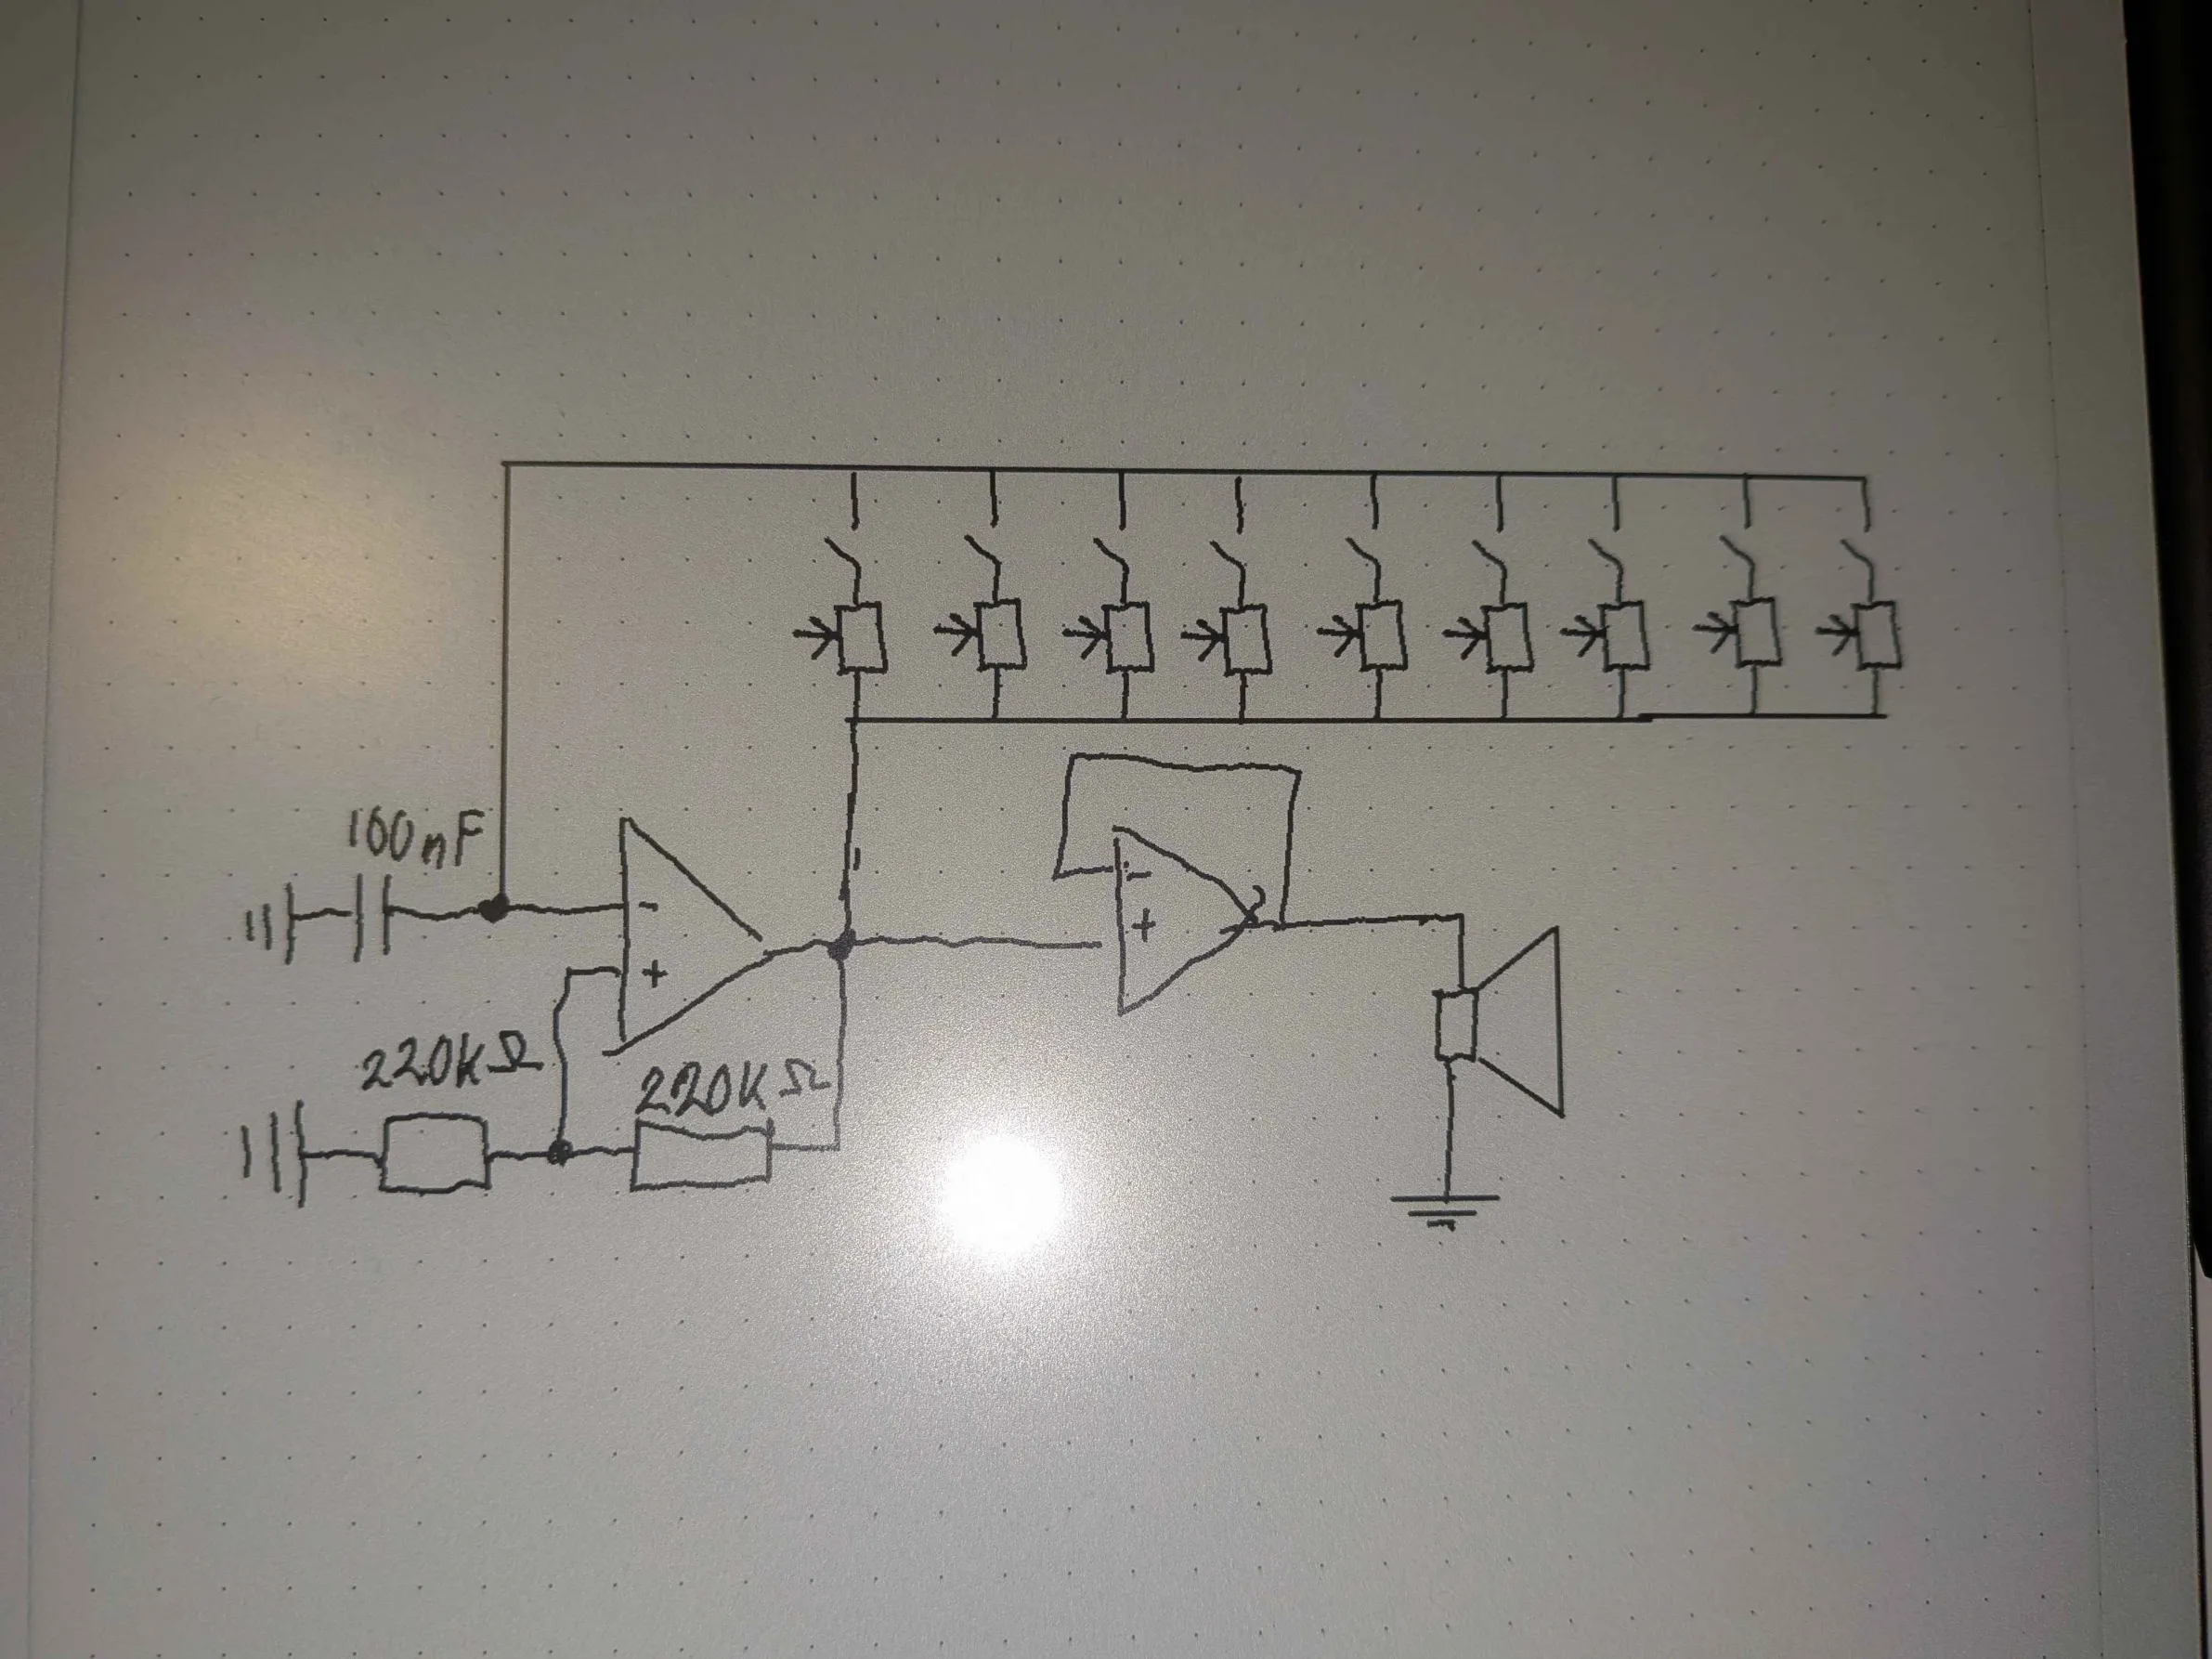 100nF
-
+
-
+
220kΩ
220kΩ